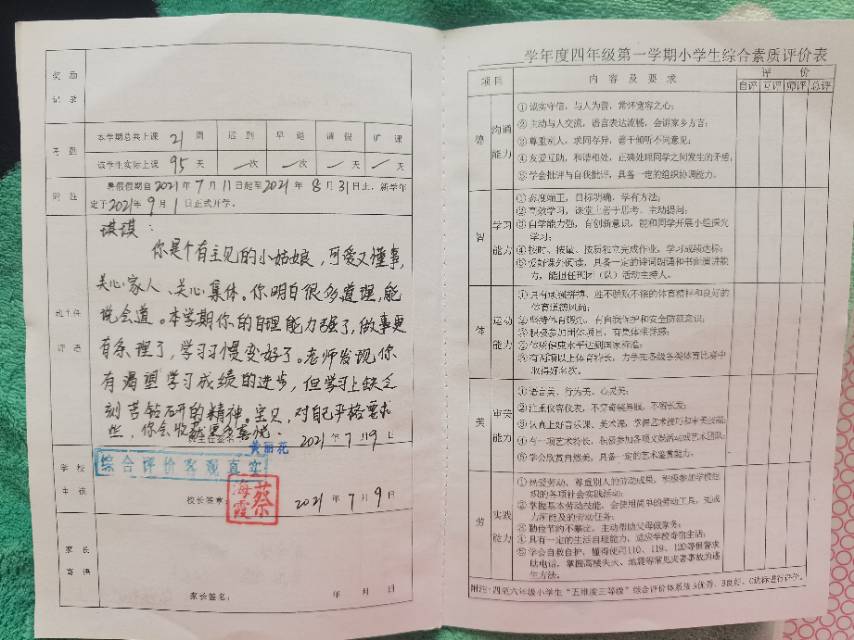 奖励
记录
考勤
本学期总共上课 21 周 迟到 早退 请假 旷课
该学生实际上课 95 天 一次 一次 一天 一天
附注
暑假假期自2021年7月11日起至2021年8月31日止，新学年
定于2021年9月1日正式开学。
班主任
评语
琪琪：
你是个有主见的小姑娘，可爱又懂事，
关心家人、关心集体。你明白很多道理，能
说会道。本学期你的自理能力强了，做事更
有条理了，学习习惯变好了。老师发现你
有渴望学习成绩的进步，但学习上缺乏
刻苦钻研的精神。宝贝，对自己严格要求
些，你会收获更多喜悦。
班主任签名：黄丽花 2021年7月9日
学校
审核
综合评价客观真实
校长签章：蔡海霞 2021年7月9日
家长
寄语
家长签名： 年 月 日
学年度四年级第一学期小学生综合素质评价表
项目 内容及要求 评价
自评 互评 师评 总评
德 沟通能力
①诚实守信，与人为善，常怀宽容之心；
②主动与人交流，语言表达流畅，会讲家乡方言；
③尊重别人，求同存异，善于倾听不同意见；
④友爱互助，和谐相处，正确处理同学之间发生的矛盾；
⑤学会批评与自我批评，具备一定的组织协调能力。
智 学习能力
①态度端正，目标明确，学有方法；
②高效学习，课堂上善于思考、主动提问；
③自学能力强，有创新意识，能和同学开展小组探究
学习；
④按时、按量、按质独立完成作业，学习成绩达标；
⑤爱好课外阅读，具备一定的诗词朗诵和书面演讲能
力，能担任班团（队）活动主持人。
体 运动能力
①具有顽强拼搏、胜不骄败不馁的体育精神和良好的
体育道德风尚；
③积极参加团体项目，有集体荣誉感；
④体质健康水平达到国家标准；
取得好名次。
美 审美能力
①语言美、行为美、心灵美；
③认真上好音乐课、美术课，掌握艺术技巧和审美技能；
④有一项艺术特长，积极参加各项文娱活动或艺术团队；
⑤学会欣赏自然美，具备一定的艺术鉴赏能力。
劳 实践能力
①热爱劳动，尊重别人的劳动成果，积极参加学校组
织的各项社会实践活动；
②掌握基本劳动技能，会使用简单的劳动工具，完成
力所能及的劳动任务；
③勤俭节约不攀比，主动帮助父母做家务；
④具有一定的生活自理能力，适应学校寄宿生活；
⑤学会自救自护，懂得使用110、119、120等报警求
助电话，掌握高楼失火、地震等常见灾害事故的逃
生方法。
附注：四至六年级小学生“五维度三等级”综合评价体系按A优秀、B良好、C达标进行评定。